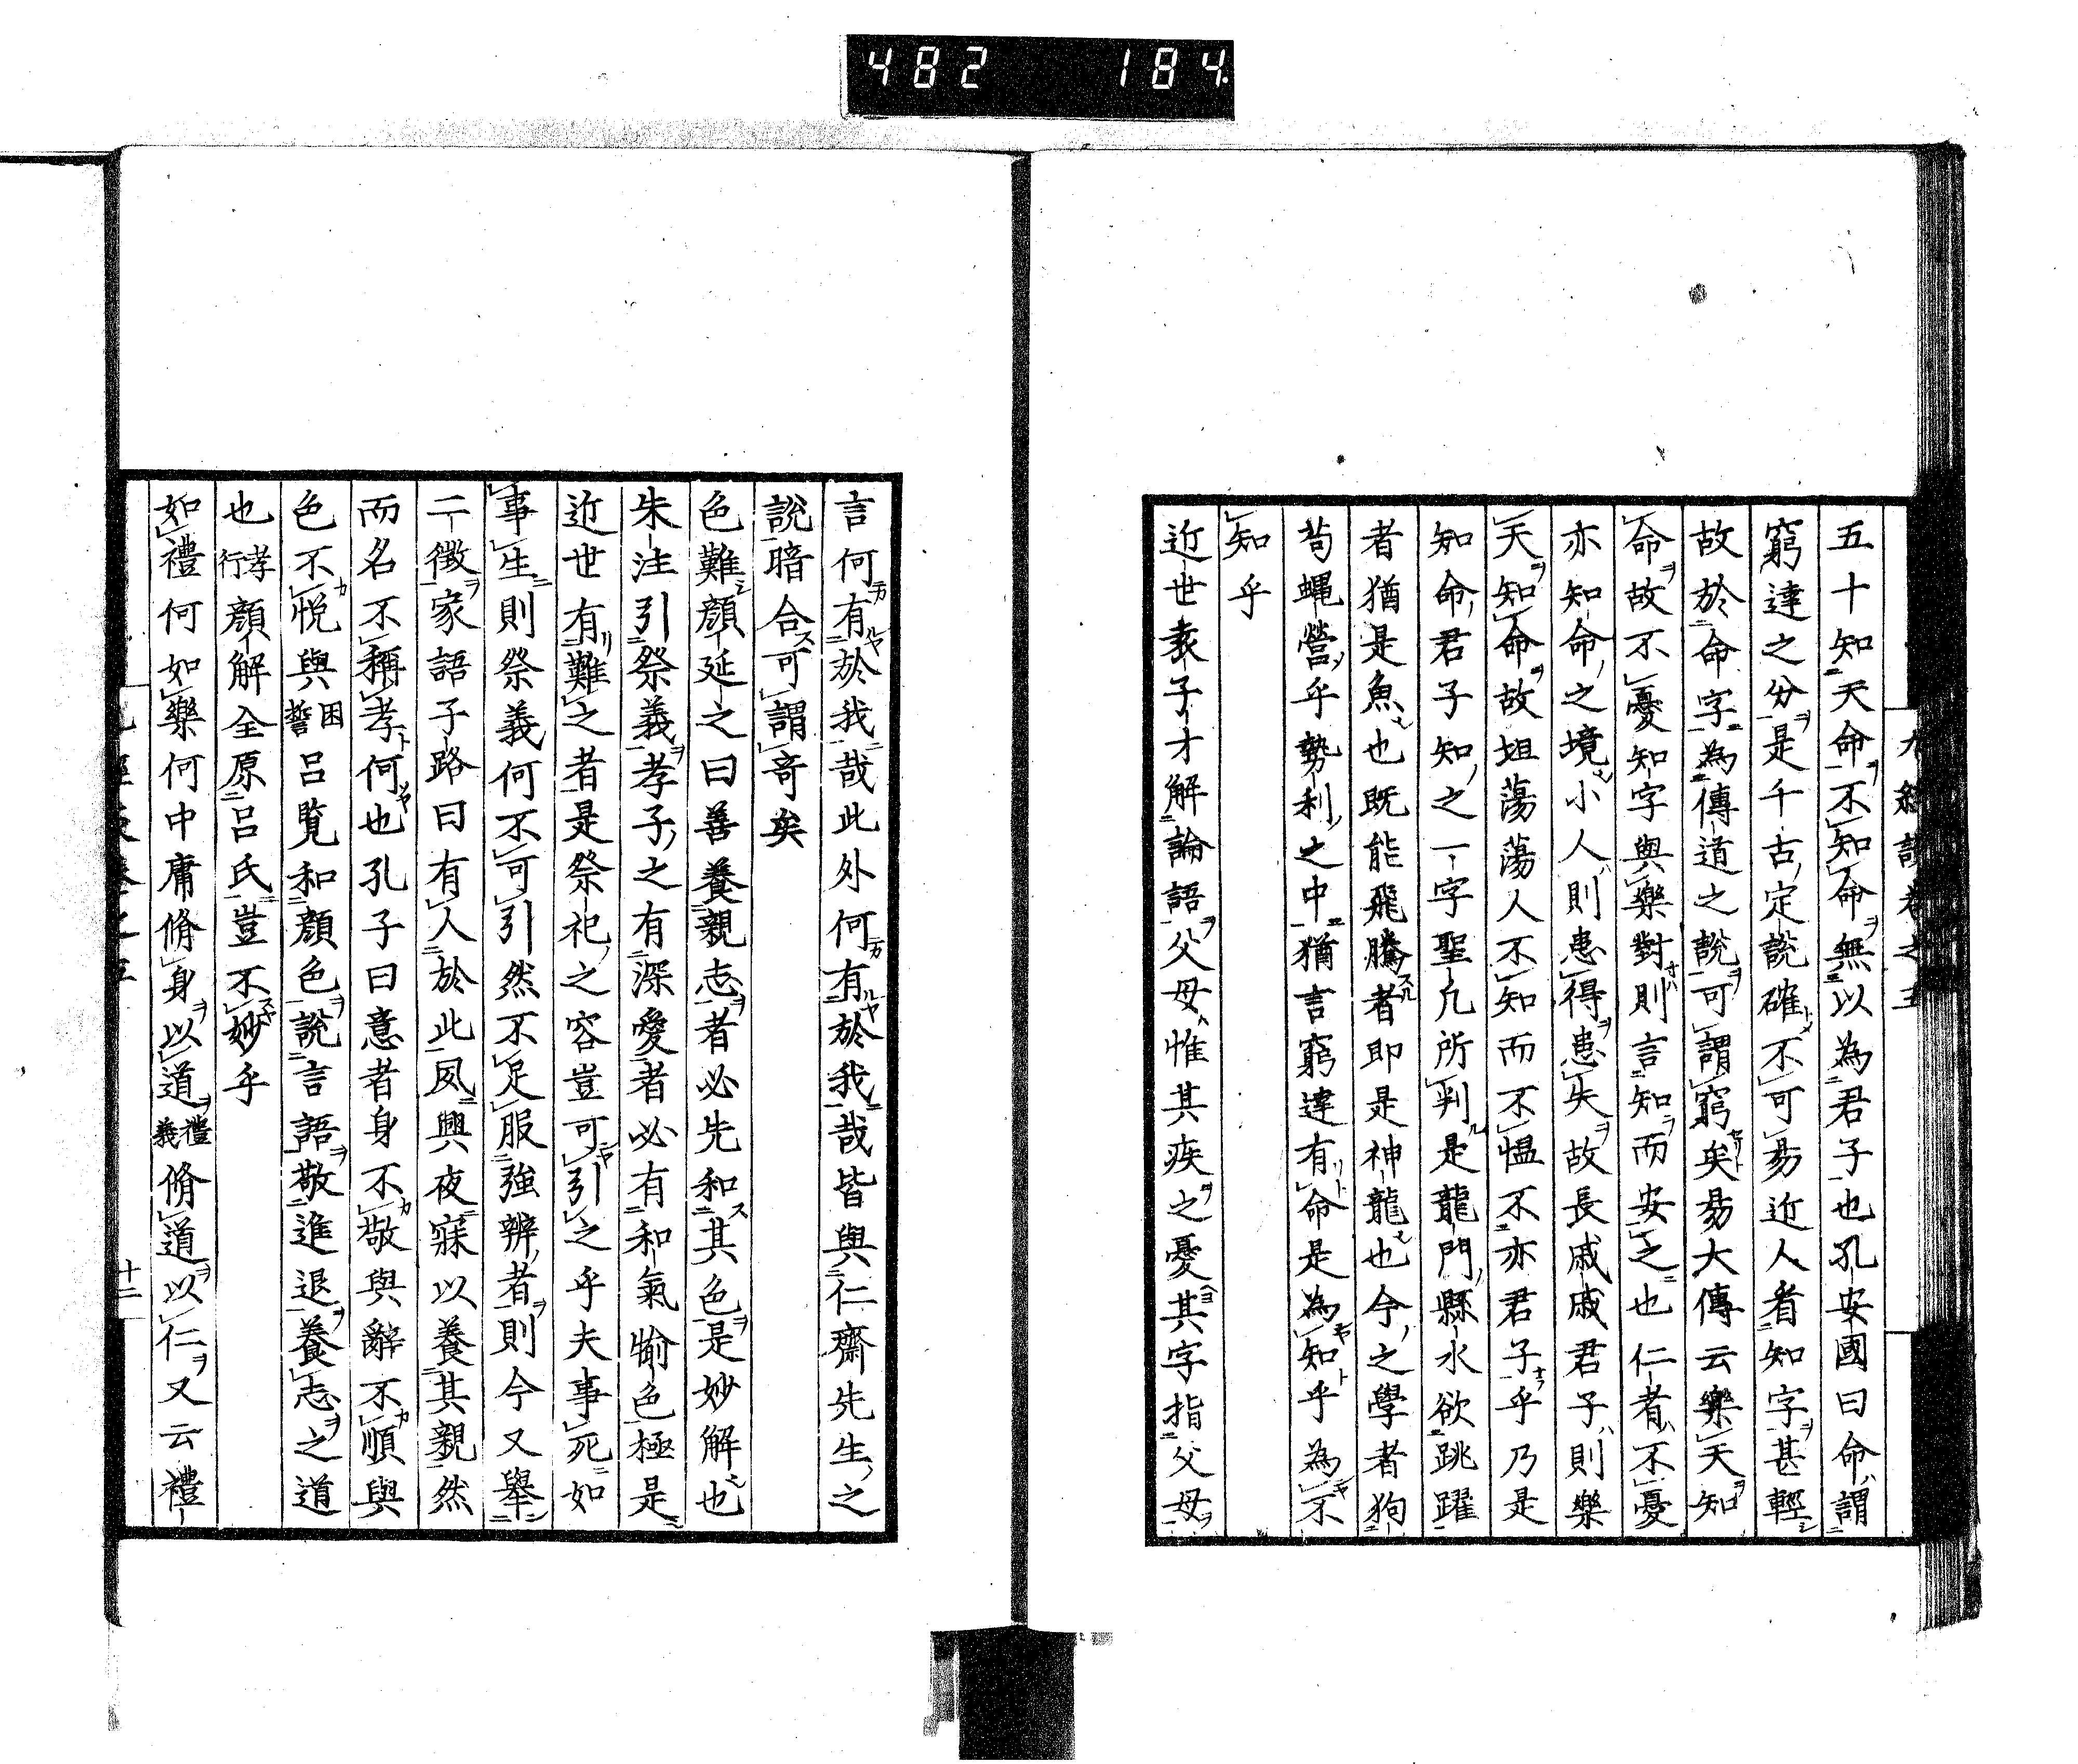 482 184
五十知天命不知命無以為君子也孔安國曰命謂
窮達之分是千古定說確不可易近人看知字甚輕
故於命字為傳道之說可謂窮矣易大傳云樂天知
命故不憂知字與樂對則言知而安之也仁者不憂
亦知命之境小人則患得患失故長戚戚君子則樂
天知命故坦蕩蕩人不知而不慍不亦君子乎乃是
知命君子知之一字聖凡所判是龍門縣水欲跳躍
者猶是魚也既能飛騰者即是神龍也今之學者狗
苟蝿營乎勢利之中猶言窮達有命是為知乎為不
知乎
近世表子才解論語父母惟其疾之憂其字指父母
言何有於我哉此外何有於我哉皆與仁齋先生之
說暗合可謂奇矣
色難顏延之曰善養親志者必先和其色是妙解也
朱注引祭義孝子之有深愛者必有和氣愉色極是
近世有難之者是祭祀之容豈可引之乎夫事死如
事生則祭義何不可引然不足服強辨者則今又舉
二徵家語子路曰有人於此夙興夜寐以養其親然
而名不稱孝何也孔子曰意者身不敬與辭不順與
色不悅與困誓呂覧和顏色說言語敬進退養志之道
也孝行顏解全原呂氏豈不妙乎
如禮何如樂何中庸脩身以道禮義脩道以仁又云禮
十二